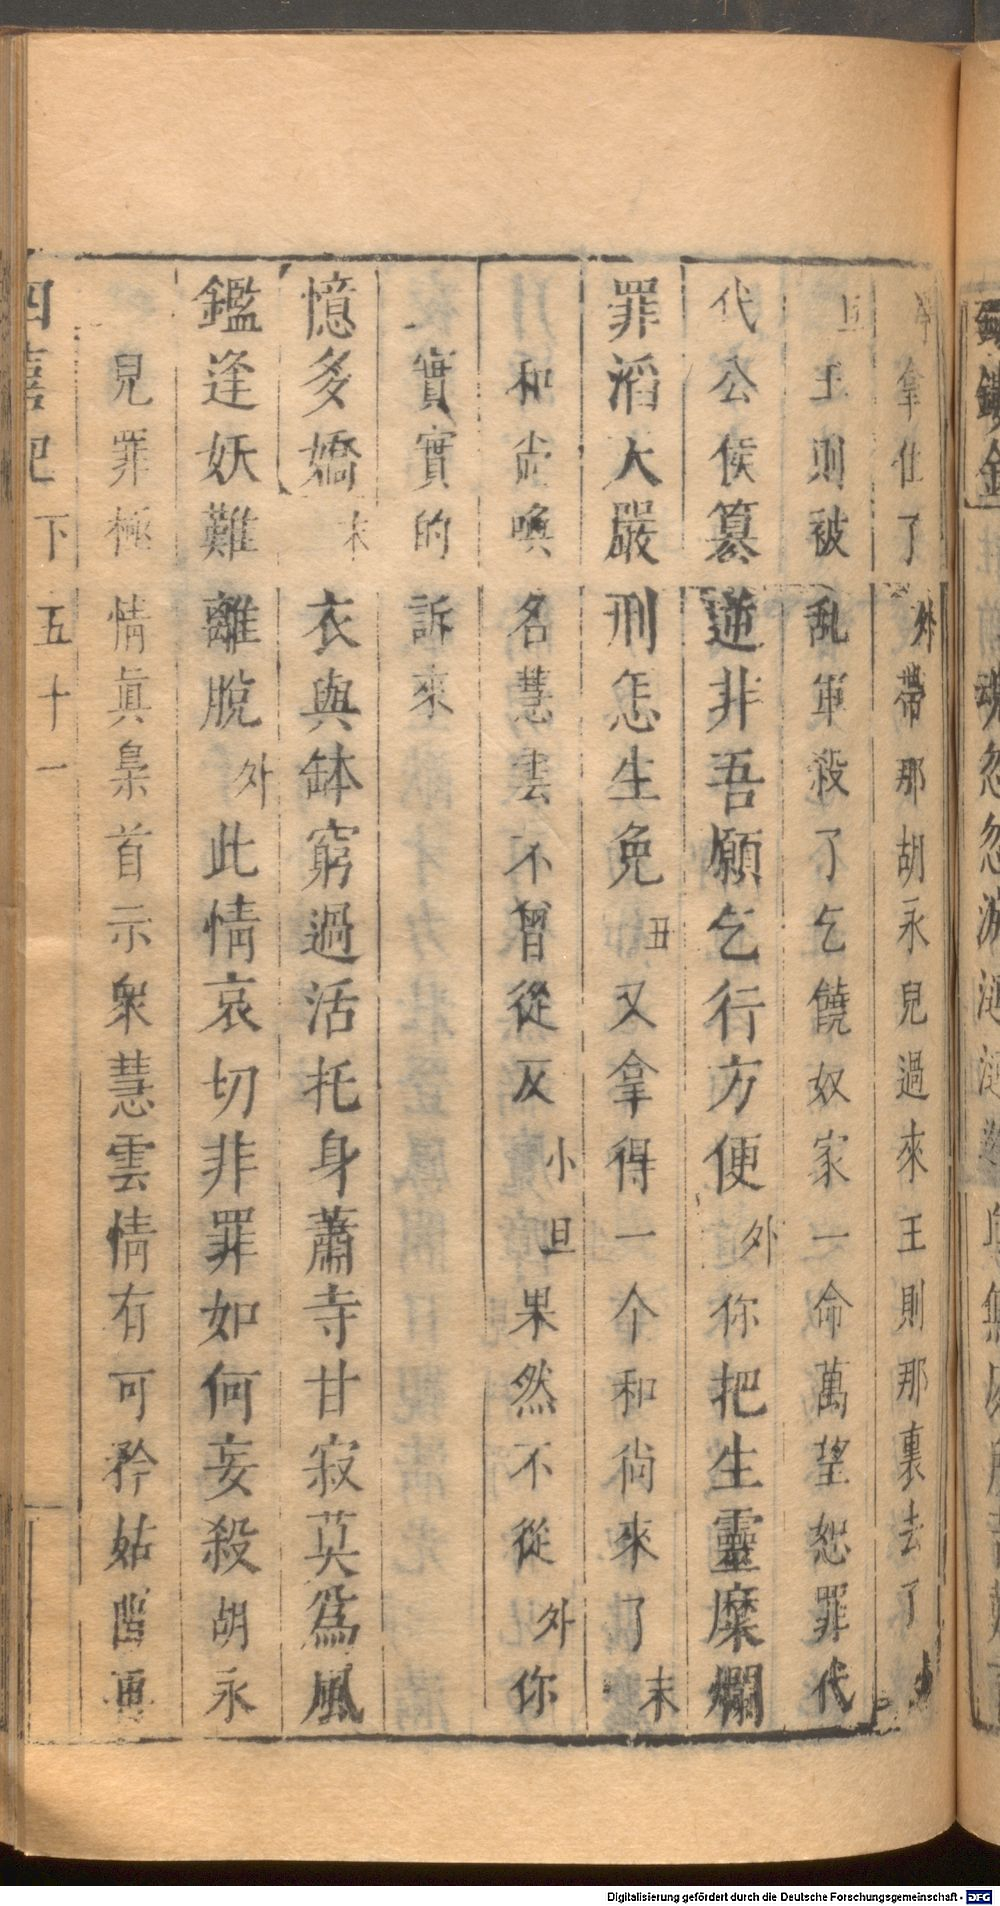 拿住了外帶那胡永兒過來王則那裏去了小
旦王則被亂軍殺了乞饒奴家一命萬望恕罪代
代公侯篡逆非吾願乞行方便外你把生靈糜爛
罪滔大嚴刑怎生免丑又拿得一个和尚來了末
和尚喚名慧雲不曾從反小旦果然不從外你
實實的訴來
憶多嬌末衣與鉢窮過活托身蕭寺甘寂莫爲風
鑑逢妖難離脫外此情哀切非罪如何妄殺胡永
兒罪極情眞梟首示衆慧雲情有可矜姑畱再
四喜記下五十一
Digitalisierung gefördert durch die Deutsche Forschungsgemeinschaft - DFG